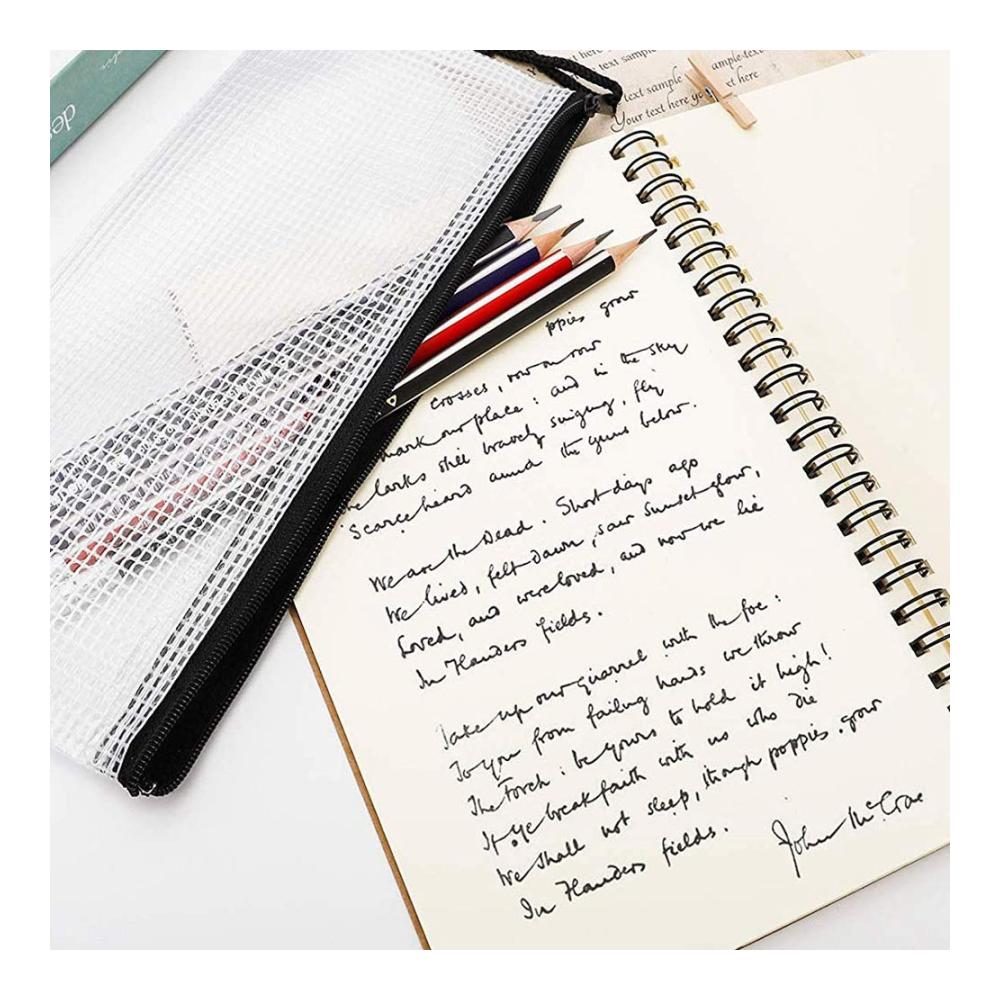 here
text sample
ample text
text sample
xt here
Your text here yo
de
ppies grow
crosses, row on row
mark our place: and in the sky
larks still bravely singing, fly
Scarce heard amid the guns below.
We are the Dead. Short days ago
We lived, felt dawn, saw sunset glow,
Loved, and were loved, and now we lie
In Flanders fields.
Take up our quarrel with the foe:
To you from failing hands we throw
The torch: be yours to hold it high!
If ye break faith with us who die
We shall not sleep, though poppies grow
In Flanders fields.
John McCrae